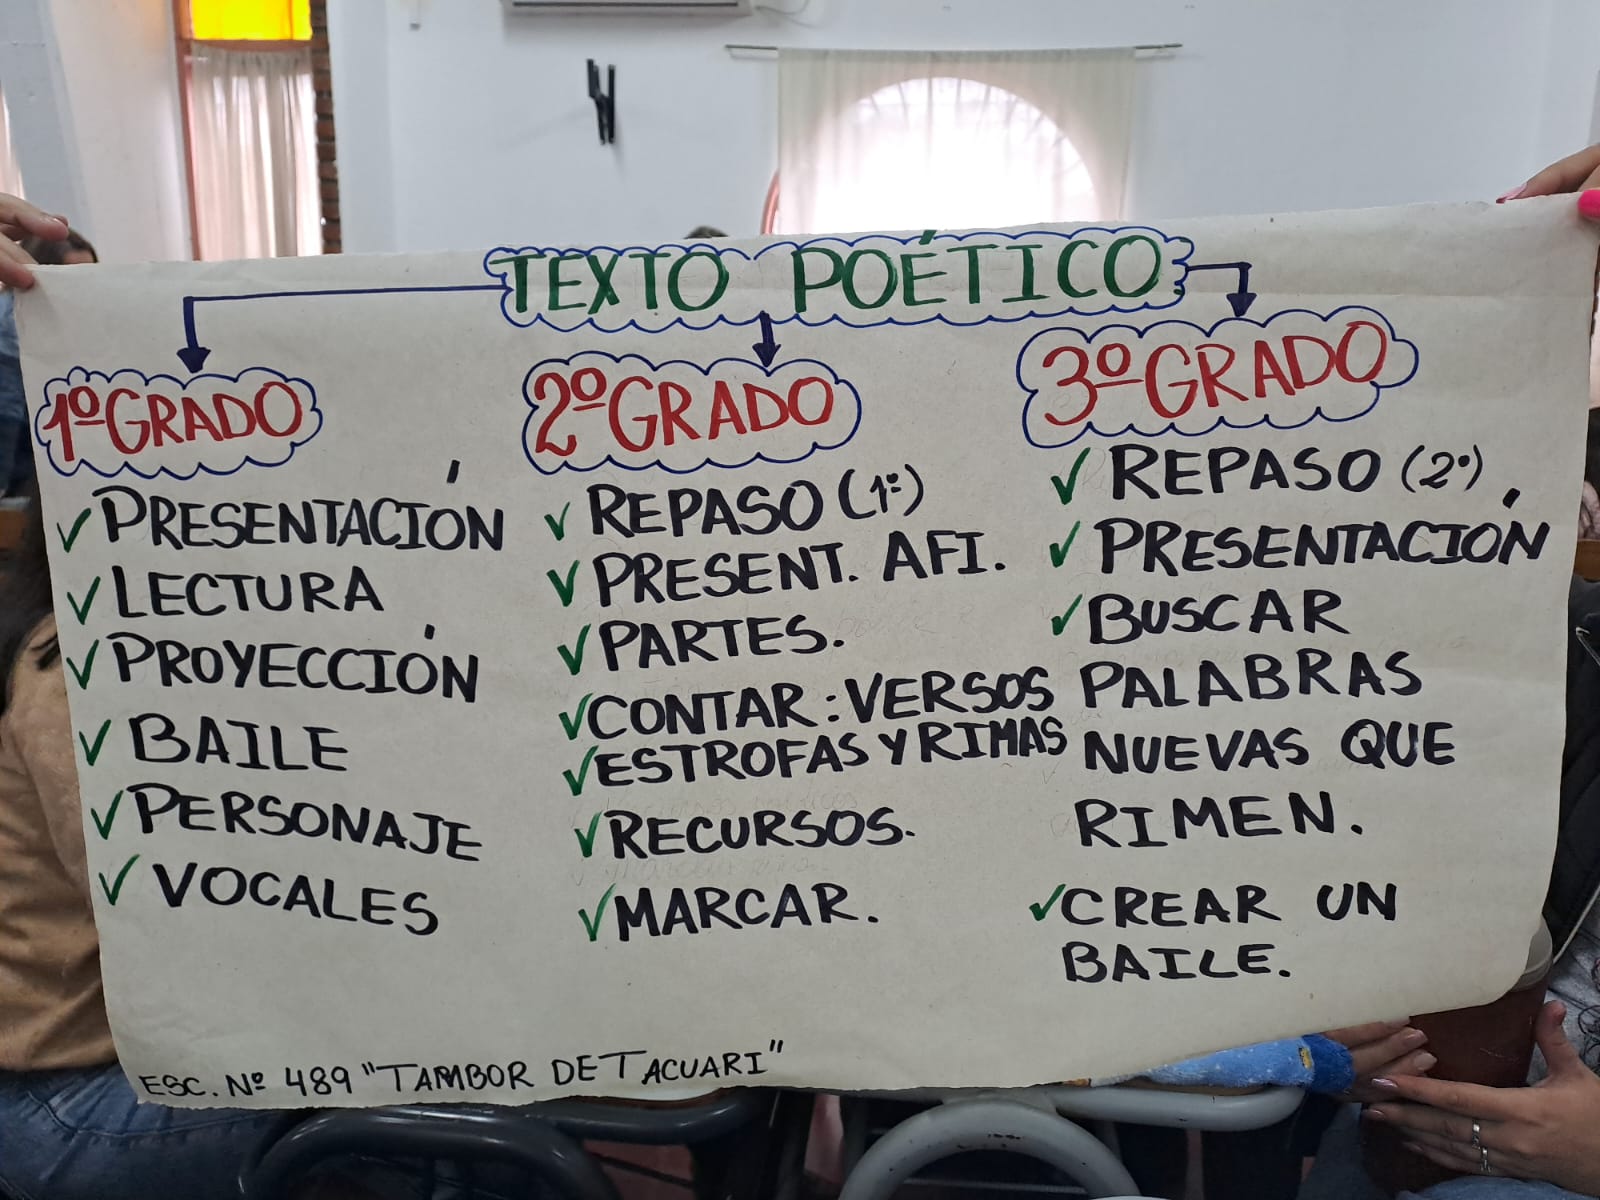 TEXTO POÉTICO
1º GRADO
✓ PRESENTACIÓN
✓ LECTURA
✓ PROYECCIÓN
✓ BAILE
✓ PERSONAJE
✓ VOCALES
2º GRADO
✓ REPASO (1º)
✓ PRESENT. AFI.
✓ PARTES.
✓ CONTAR: VERSOS
✓ ESTROFAS Y RIMAS
✓ RECURSOS.
✓ MARCAR.
3º GRADO
✓ REPASO (2º)
✓ PRESENTACIÓN
✓ BUSCAR
PALABRAS
NUEVAS QUE
RIMEN.
✓ CREAR UN
BAILE.
ESC. Nº 489 "TAMBOR DE TACUARI"